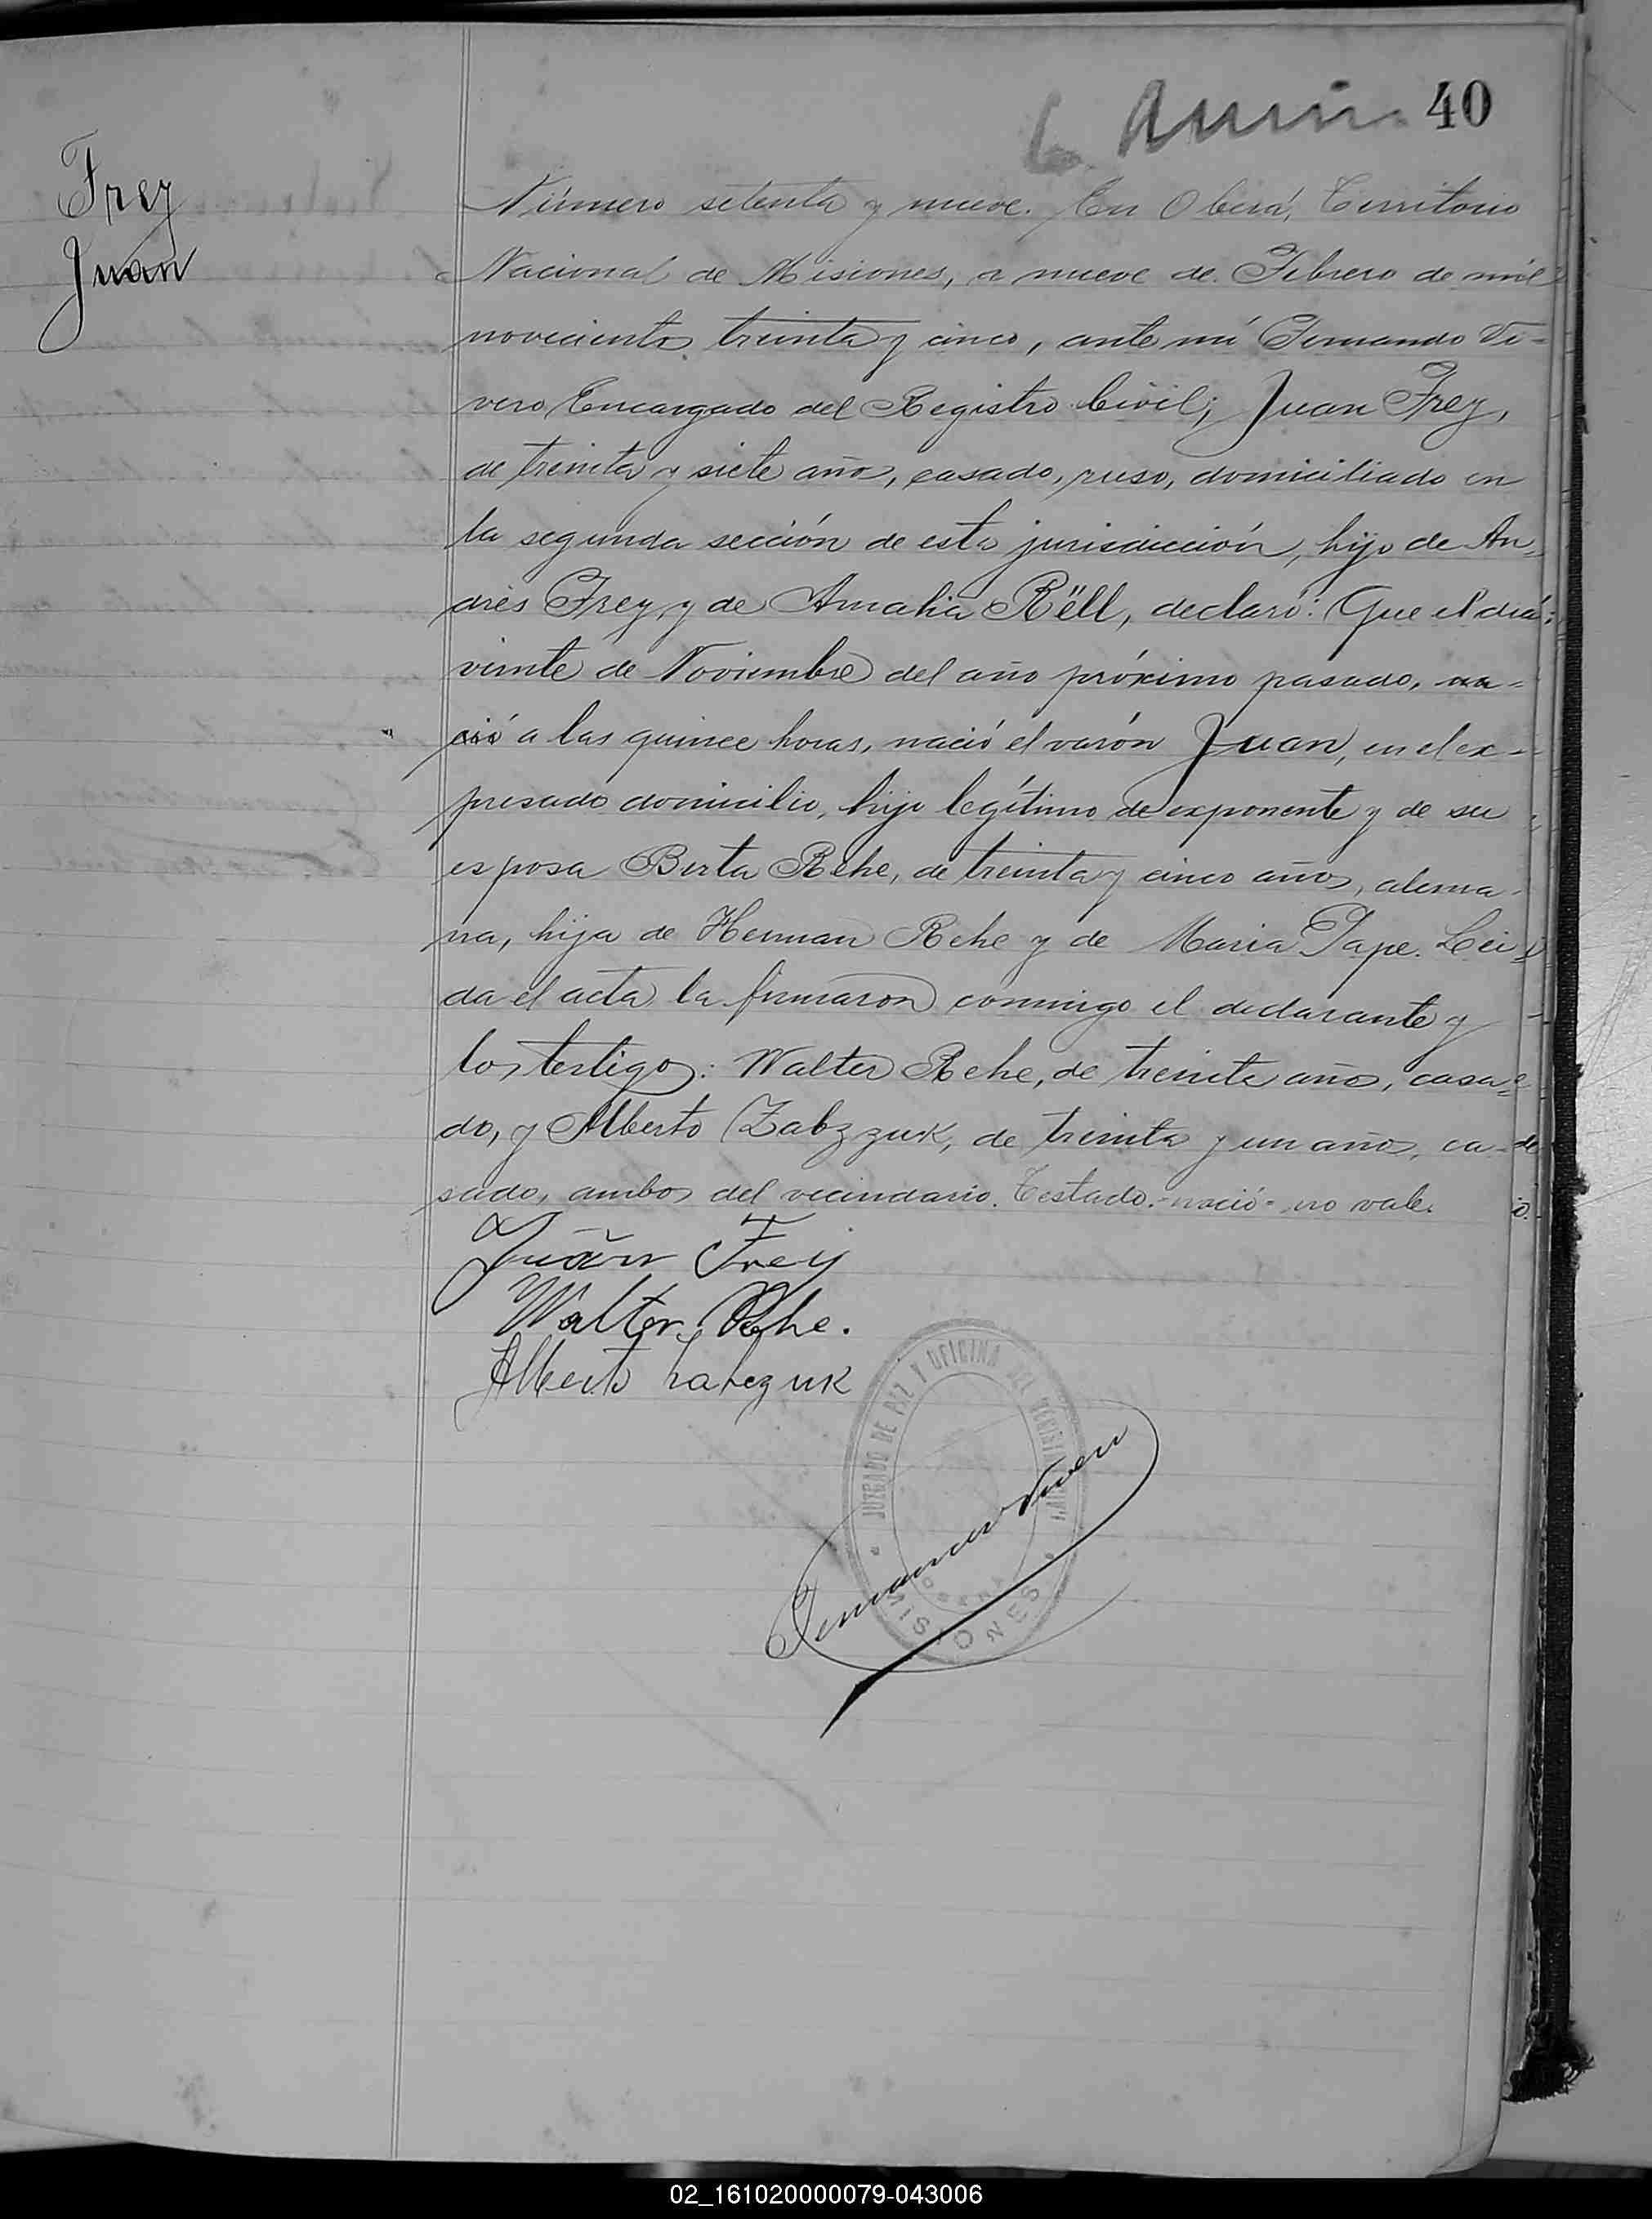 40
Frey
Juan
Número setenta y nueve. En Oberá, Territorio
Nacional de Misiones, a nueve de Febrero de mil
novecientos treinta y cinco, ante mí Fernando Vi-
vero Encargado del Registro Civil; Juan Frey,
de treinta y siete años, casado, ruso, domiciliado en
la segunda sección de esta jurisdicción, hijo de An-
drés Frey, y de Amalia Rëll, declaró: Que el día
veinte de Noviembre del año próximo pasado, na-
ció a las quince horas, nació el varón Juan, en el ex-
presado domicilio, hijo legítimo de exponente y de su
esposa Berta Rehe, de treinta y cinco años, alema-
na, hija de Herman Rehe y de Maria Pape. Lei-
da el acta la firmaron conmigo el declarante y
los testigos: Walter Rehe, de treinta años, casa-
do, y Alberto Zabzzuk, de treinta y un años, ca-
sado, ambos del vecindario. Testado:-nació- no vale.
Juan Frey
Walter Rehe.
Alberto
JUZGADO DE PAZ Y OFICINA DEL REGISTRO
MISIONES
Fernando Vivero
02_161020000079-043006